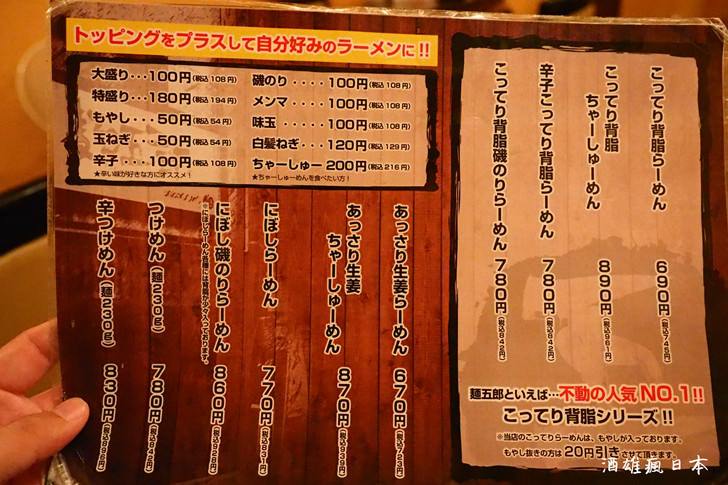 トッピングをプラスして自分好みのラーメンに!!
大盛り・・・100円(税込108円)
特盛り・・・180円(税込194円)
もやし・・・50円(税込54円)
玉ねぎ・・・50円(税込54円)
辛子・・・100円(税込108円)
★辛い味が好きな方にオススメ!
磯のり・・・・100円(税込108円)
メンマ・・・・100円(税込108円)
味玉・・・・・100円(税込108円)
白髪ねぎ・・・120円(税込129円)
ちゃーしゅー 200円(税込216円)
★ちゃーしゅーめんを食べたい方!
こってり背脂らーめん 690円(税込745円)
こってり背脂
ちゃーしゅーめん 890円(税込961円)
辛子こってり背脂らーめん 780円(税込842円)
こってり背脂磯のりらーめん 780円(税込842円)
麺五郎といえば…不動の人気NO.1!!
こってり背脂シリーズ!!
※当店のこってりらーめんは、もやしが入っております。
もやし抜きの方は20円引きさせて頂きます。
あっさり生姜らーめん 670円(税込723円)
あっさり生姜
ちゃーしゅーめん 870円(税込939円)
にぼしらーめん 770円(税込831円)
にぼし磯のりらーめん 860円(税込928円)
※にぼしらーめん各種には背脂が少々入っております。
つけめん(麺230g) 780円(税込842円)
辛つけめん(麺230g) 830円(税込896円)
酒雄瘋日本